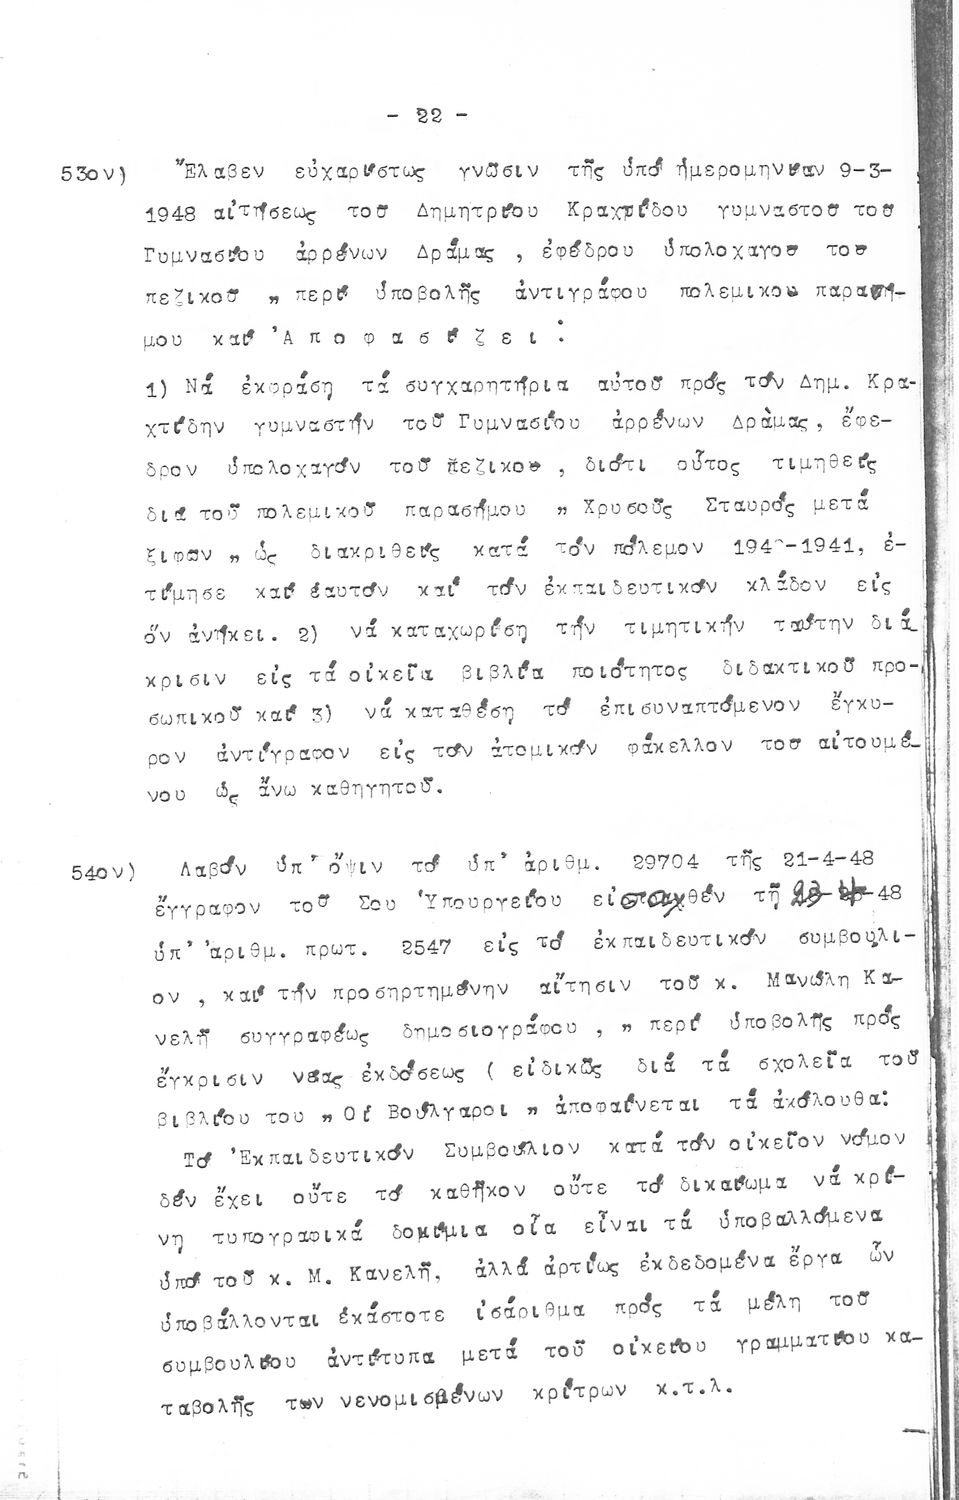 - 22 -
53ον) Ἔλαβεν εὐχαρίστως γνῶσιν τῆς ὑπό ἡμερομηνίαν 9-3-
1948 αἰτήσεως τοῦ Δημητρίου Κραχτίδου γυμναστοῦ τοῦ
Γυμνασίου ἀρρένων Δράμας , ἐφέδρου ὑπολοχαγοῦ τοῦ
πεζικοῦ „ περί ὑποβολῆς ἀντιγράφου πολεμικοῦ παραση-
μου καί Ἀ π ο φ α σ ί ζ ε ι :
1) Νά ἐκφράση τά συγχαρητήρια αὐτοῦ πρός τόν Δημ. Κρα-
χτίδην γυμναστήν τοῦ Γυμνασίου ἀρρένων Δράμας, ἔφε-
δρον ὑπολοχαγόν τοῦ πεζικοῦ , διότι οὗτος τιμηθείς
διά τοῦ πολεμικοῦ παρασήμου „ Χρυσοῦς Σταυρός μετά
ξιφῶν „ ὡς διακριθείς κατά τόν πόλεμον 194 -1941, ἐ-
τίμησε καί ἑαυτόν καί τόν ἐκπαιδευτικόν κλάδον εἰς
ὅν ἀνήκει. 2) νά καταχωρίση τήν τιμητικήν ταύτην διά_
κρισιν εἰς τά οἰκεῖα βιβλία ποιότητος διδακτικοῦ προ-
σωπικοῦ καί 3) νά καταθέση τό ἐπισυναπτόμενον ἔγκυ-
ρον ἀντίγραφον εἰς τόν ἀτομικόν φάκελλον τοῦ αἰτουμέ_
νου ὡς ἄνω καθηγητοῦ.
54ον) Λαβόν ὑπ' ὄψιν τό ὑπ' ἀριθμ. 29704 τῆς 21-4-48
ἔγγραφον τοῦ Σου Ὑπουργείου εἰσαχθέν τῇ 23- -48
ὑπ' ἀριθμ. πρωτ. 2547 εἰς τό ἐκπαιδευτικόν συμβούλι-
ον , καί τήν προσηρτημένην αἴτησιν τοῦ κ. Μανώλη Κα-
νελῆ συγγραφέως δημοσιογράφου , „ περί ὑποβολῆς πρός
ἔγκρισιν νέας ἐκδόσεως ( εἰδικῶς διά τά σχολεῖα τοῦ
βιβλίου του „ Οἱ Βούλγαροι „ ἀποφαίνεται τά ἀκόλουθα:
Τό Ἐκπαιδευτικόν Συμβούλιον κατά τόν οἰκεῖον νόμον
δέν ἔχει οὔτε τό καθῆκον οὔτε τό δικαίωμα νά κρί-
νη τυπογραφικά δοκίμια οἷα εἶναι τά ὑποβαλλόμενα
ὑπό τοῦ κ. Μ. Κανελῆ, ἀλλά ἀρτίως ἐκδεδομένα ἔργα ὧν
ὑποβάλλονται ἑκάστοτε ἰσάριθμα πρός τά μέλη τοῦ
συμβουλίου ἀντίτυπα μετά τοῦ οἰκείου γραμματίου κα-
ταβολῆς τῶν νενομισμένων κρίτρων κ.τ.λ.